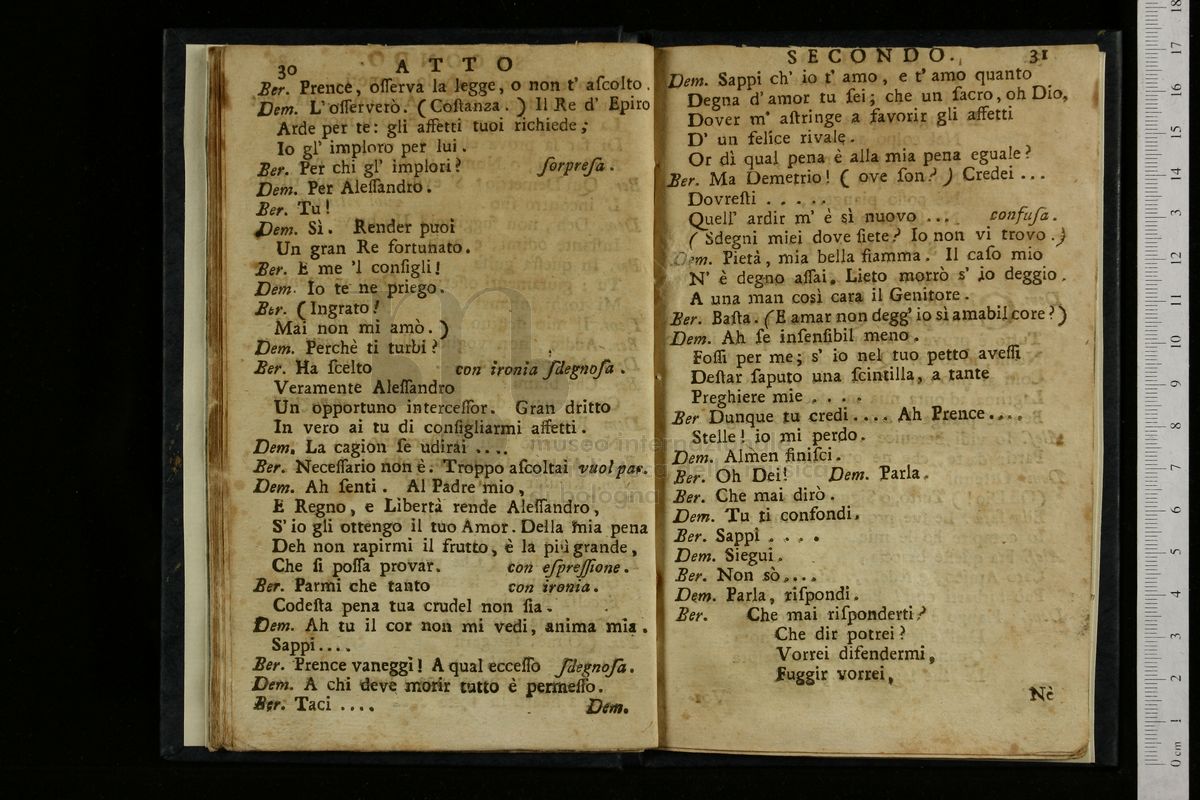 30 ATTO
Ber. Prence, oſſerva la legge, o non t' aſcolto.
Dem. L' oſſerverò. (Coſtanza.) Il Re d' Epiro
Arde per te: gli affetti tuoi richiede;
Io gl' imploro per lui.
Ber. Per chi gl' implori? ſorpreſa.
Dem. Per Aleſſandro.
Ber. Tu!
Dem. Sì. Render puoi
Un gran Re fortunato.
Ber. E me 'l conſigli!
Dem. Io te ne priego.
Ber. (Ingrato!
Mai non mi amò.)
Dem. Perchè ti turbi?
Ber. Ha ſcelto con ironia ſdegnoſa.
Veramente Aleſſandro
Un opportuno interceſſor. Gran dritto
In vero ai tu di conſigliarmi affetti.
Dem. La cagion ſe udirai ....
Ber. Neceſſario non è. Troppo aſcoltai vuol par.
Dem. Ah ſenti. Al Padre mio,
E Regno, e Libertà rende Aleſſandro,
S' io gli ottengo il tuo Amor. Della mia pena
Deh non rapirmi il frutto, è la più grande,
Che ſi poſſa provar. con eſpreſſione.
Ber. Parmi che tanto con ironia.
Codeſta pena tua crudel non ſia.
Dem. Ah tu il cor non mi vedi, anima mia.
Sappi....
Ber. Prence vaneggi! A qual ecceſſo ſdegnoſa.
Dem. A chi deve morir tutto è permeſſo.
Ber. Taci .... Dem.
SECONDO. 31
Dem. Sappi ch' io t' amo, e t' amo quanto
Degna d' amor tu ſei; che un ſacro, oh Dio,
Dover m' aſtringe a favorir gli affetti
D' un felice rivale.
Or dì qual pena è alla mia pena eguale?
Ber. Ma Demetrio! (ove ſon?) Credei ...
Dovreſti .....
Quell' ardir m' è sì nuovo ... confuſa.
(Sdegni miei dove ſiete? Io non vi trovo.)
Dem. Pietà, mia bella fiamma. Il caſo mio
N' è degno aſſai. Lieto morrò s' io deggio.
A una man così cara il Genitore.
Ber. Baſta. (E amar non degg' io sì amabil core?)
Dem. Ah ſe inſenſibil meno.
Foſſi per me; s' io nel tuo petto aveſſi
Deſtar ſaputo una ſcintilla, a tante
Preghiere mie ....
Ber Dunque tu credi.... Ah Prence....
Stelle! io mi perdo.
Dem. Almen finiſci.
Ber. Oh Dei! Dem. Parla.
Ber. Che mai dirò.
Dem. Tu ti confondi.
Ber. Sappi ....
Dem. Siegui.
Ber. Non sò....
Dem. Parla, riſpondi.
Ber. Che mai riſponderti?
Che dir potrei?
Vorrei difendermi,
Fuggir vorrei,
Nè